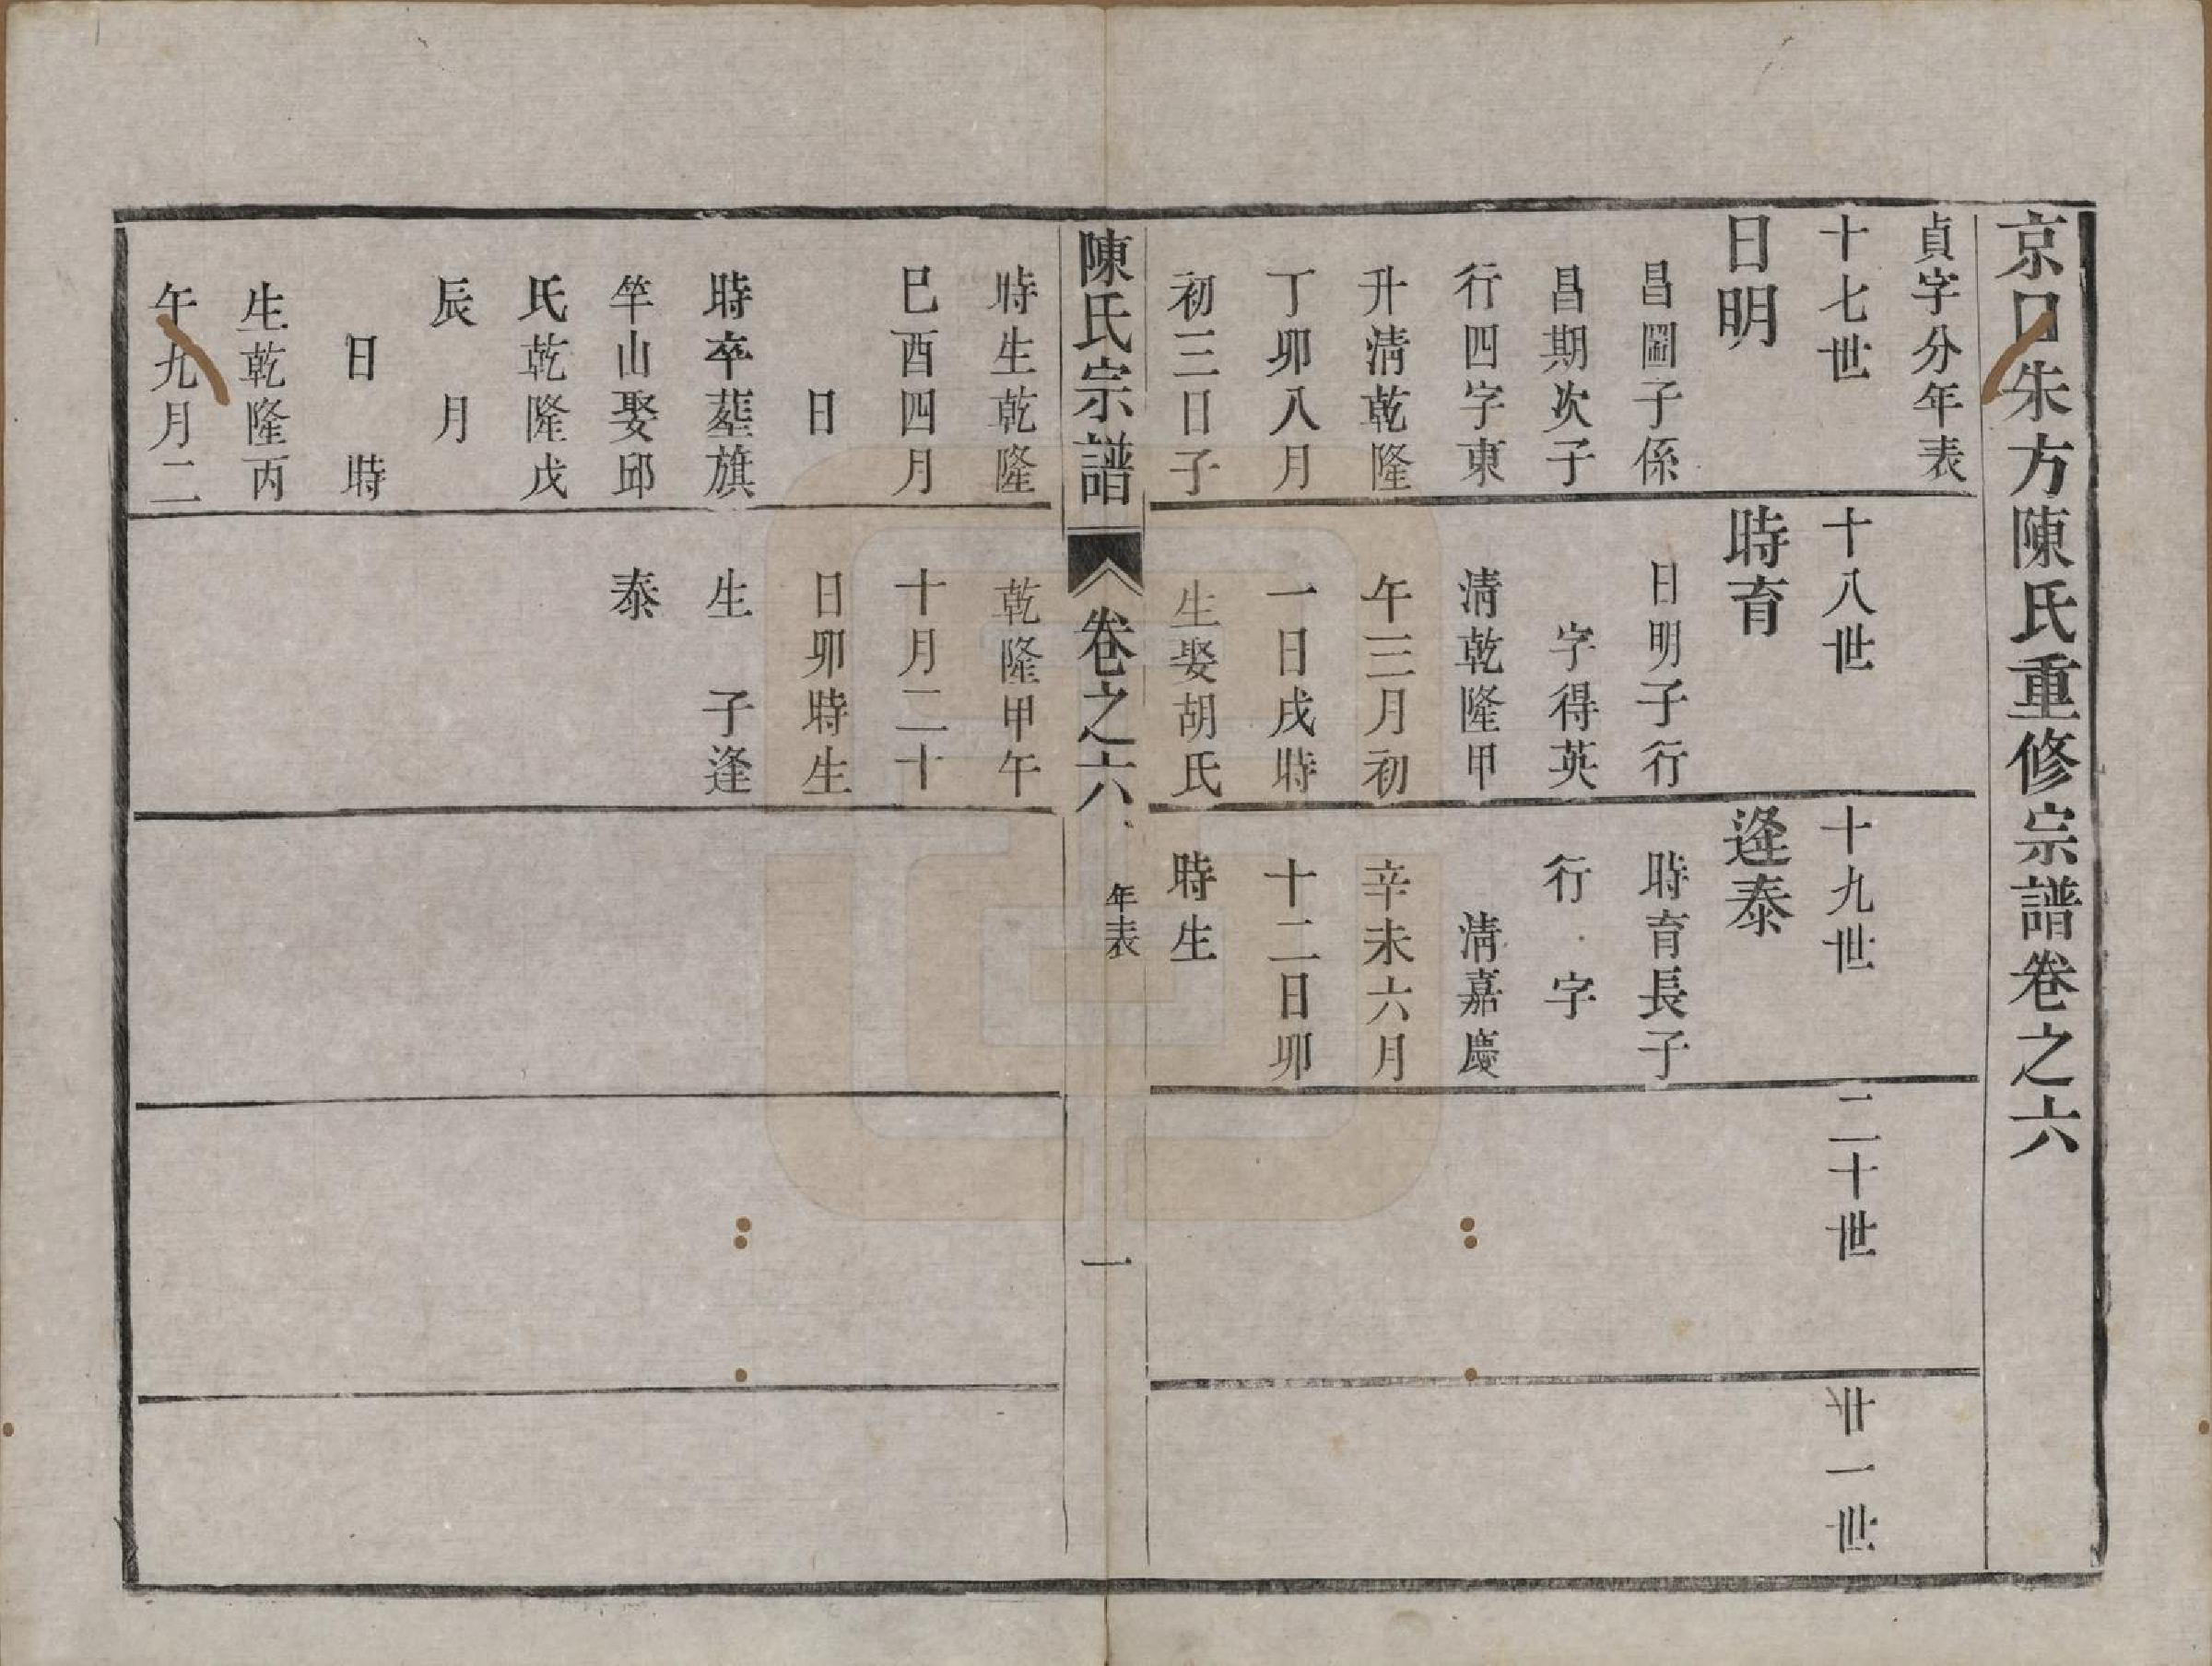 京口朱方陳氏重修宗譜卷之六
貞字分年表
十七世
日明
昌圖子係
昌期次子
行四字東
升清乾隆
丁卯八月
初三日子
時生乾隆
巳酉四月
日
時卒葬旗
竿山娶邱
氏乾隆戊
辰 月
日 時
生乾隆丙
午九月二
十八世
時育
日明子行
字得英
清乾隆甲
午三月初
一日戌時
生娶胡氏
乾隆甲午
十月二十
日卯時生
生 子逢
泰
十九世
逢泰
時育長子
行 字
清嘉慶
辛未六月
十二日卯
時生
二十世
廿一世
陳氏宗譜
卷之六
年表
一